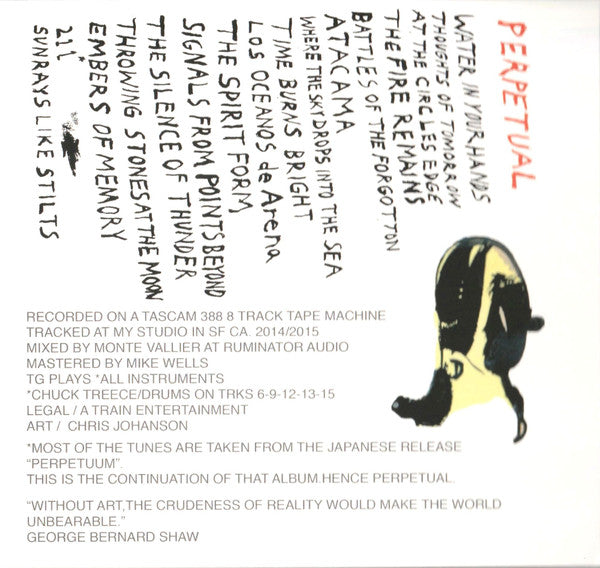 PERPETUAL
WATER IN YOUR HANDS
THOUGHTS OF TOMORROW
AT THE CIRCLES EDGE
THE FIRE REMAINS
BATTLES OF THE FORGOTTON
ATACAMA
WHERE THE SKY DROPS INTO THE SEA
TIME BURNS BRIGHT
LOS OCEANOS de Arena
THE SPIRIT FORM
SIGNALS FROM POINTS BEYOND
THE SILENCE OF THUNDER
THROWING STONES AT THE MOON
EMBERS OF MEMORY
SUNRAYS LIKE STILTS
RECORDED ON A TASCAM 388 8 TRACK TAPE MACHINE
TRACKED AT MY STUDIO IN SF CA. 2014/2015
MIXED BY MONTE VALLIER AT RUMINATOR AUDIO
MASTERED BY MIKE WELLS
TG PLAYS *ALL INSTRUMENTS
*CHUCK TREECE/DRUMS ON TRKS 6-9-12-13-15
LEGAL / A TRAIN ENTERTAINMENT
ART / CHRIS JOHANSON
*MOST OF THE TUNES ARE TAKEN FROM THE JAPANESE RELEASE
“PERPETUUM”.
THIS IS THE CONTINUATION OF THAT ALBUM.HENCE PERPETUAL.
“WITHOUT ART,THE CRUDENESS OF REALITY WOULD MAKE THE WORLD
UNBEARABLE.”
GEORGE BERNARD SHAW